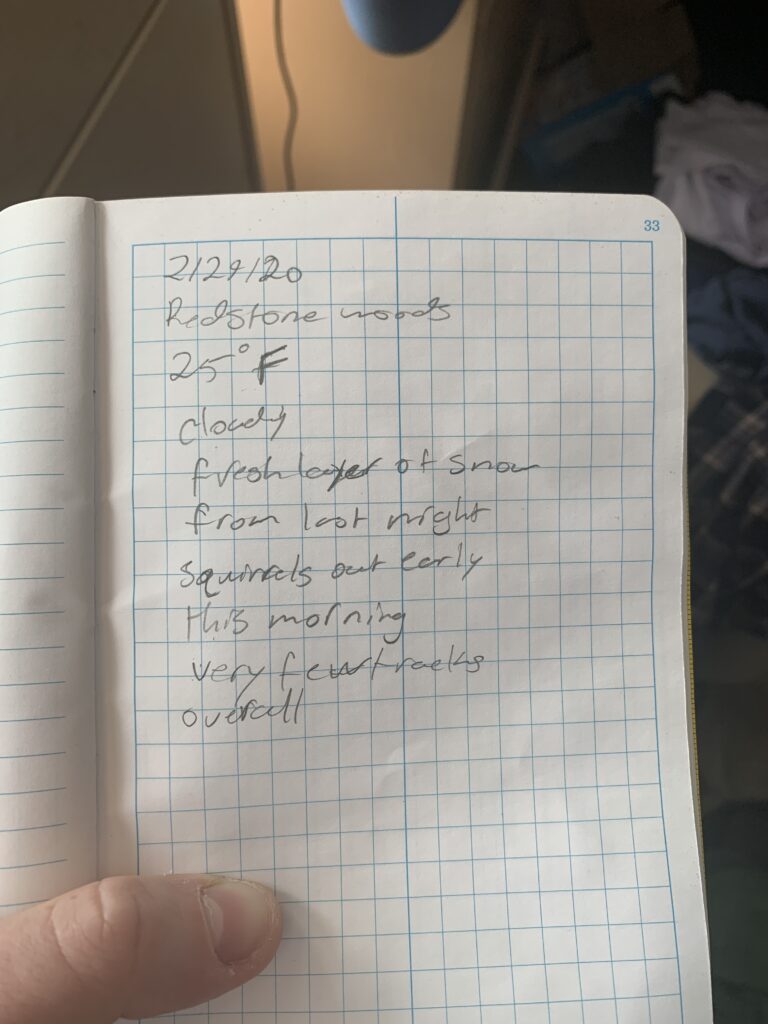 33
2/27/20
Redstone woods
25°F
cloudy
fresh layer of snow
from last night
squirrels out early
this morning
very few tracks
overall